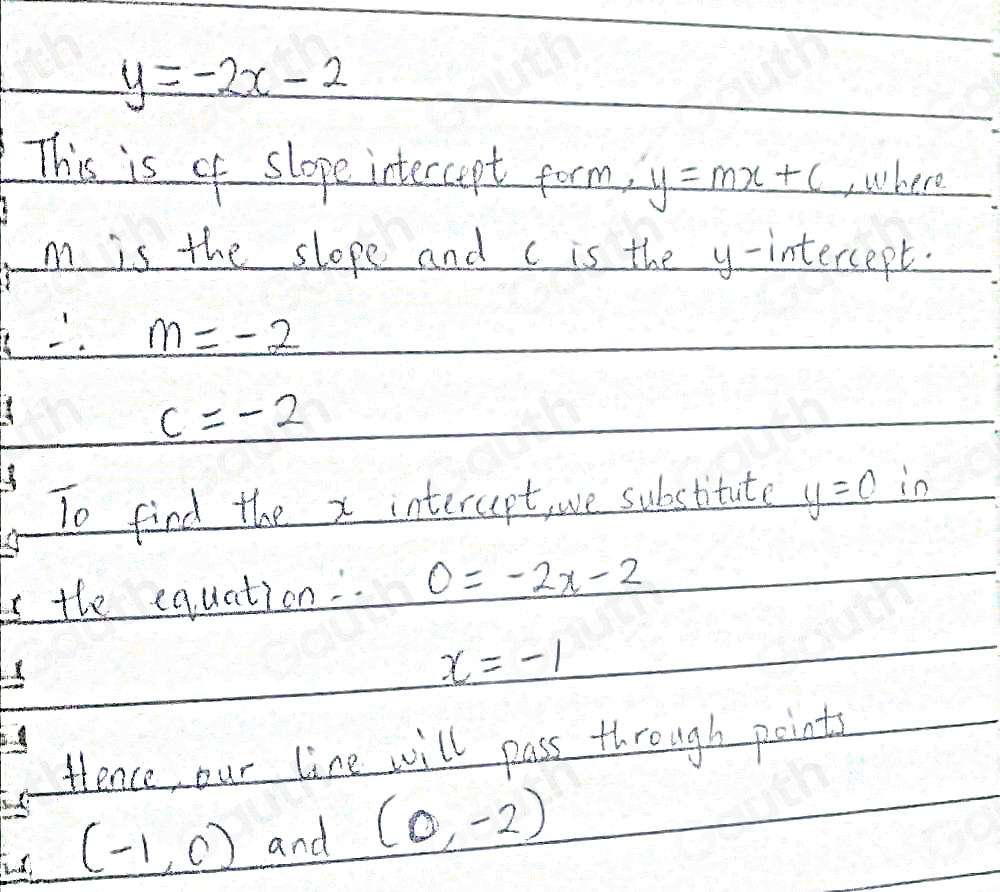 y = -2x - 2
This is of slope intercept form, y = mx + c, where
m is the slope and c is the y-intercept.
∴ m = -2
c = -2
To find the x intercept, we substitute y = 0 in
the equation ∴ 0 = -2x - 2
x = -1
Hence, our line will pass through points
(-1, 0) and (0, -2)